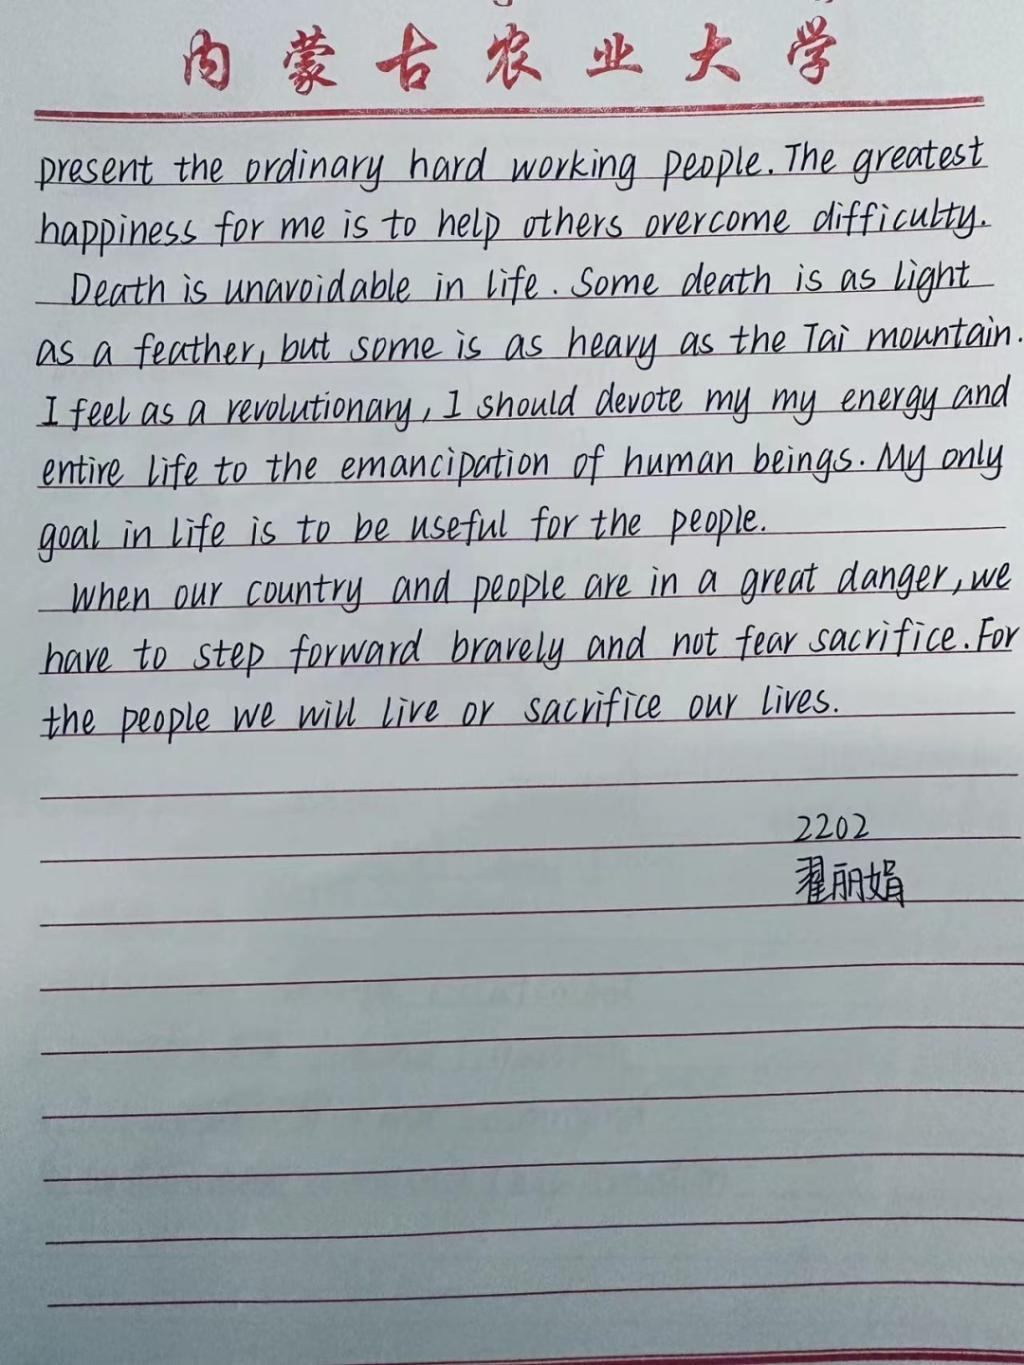 内蒙古农业大学
present the ordinary hard working people. The greatest
happiness for me is to help others overcome difficulty.
Death is unavoidable in life. Some death is as light
as a feather, but some is as heavy as the Tai mountain.
I feel as a revolutionary, I should devote my my energy and
entire life to the emancipation of human beings. My only
goal in life is to be useful for the people.
When our country and people are in a great danger, we
have to step forward bravely and not fear sacrifice. For
the people we will live or sacrifice our lives.
2202
翟丽娟